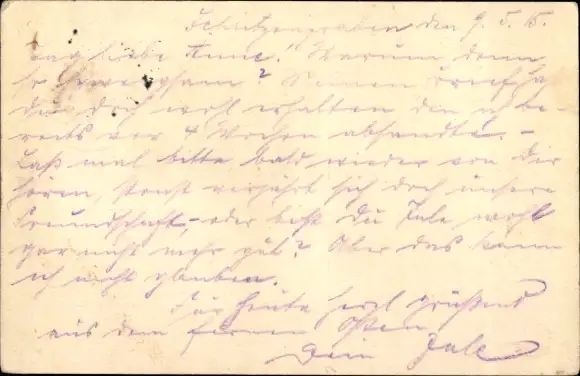 Schützengraben den 9. 5. 15.
Tag liebe Anne." Warum denn
so schweigsam? Meinen Brief ha
du doch wohl erhalten den ich be-
reits vor 4 Wochen absandte. -
Laß mal bitte bald wieder von Dir
hören, sonst verjährt sich doch unsere
Freundschaft, - oder bist du Jule wohl
gar nicht mehr gut? Aber das kann
ich nicht glauben.
Für heute herzl grüßend
aus dem fernen Osten
Dein Jule